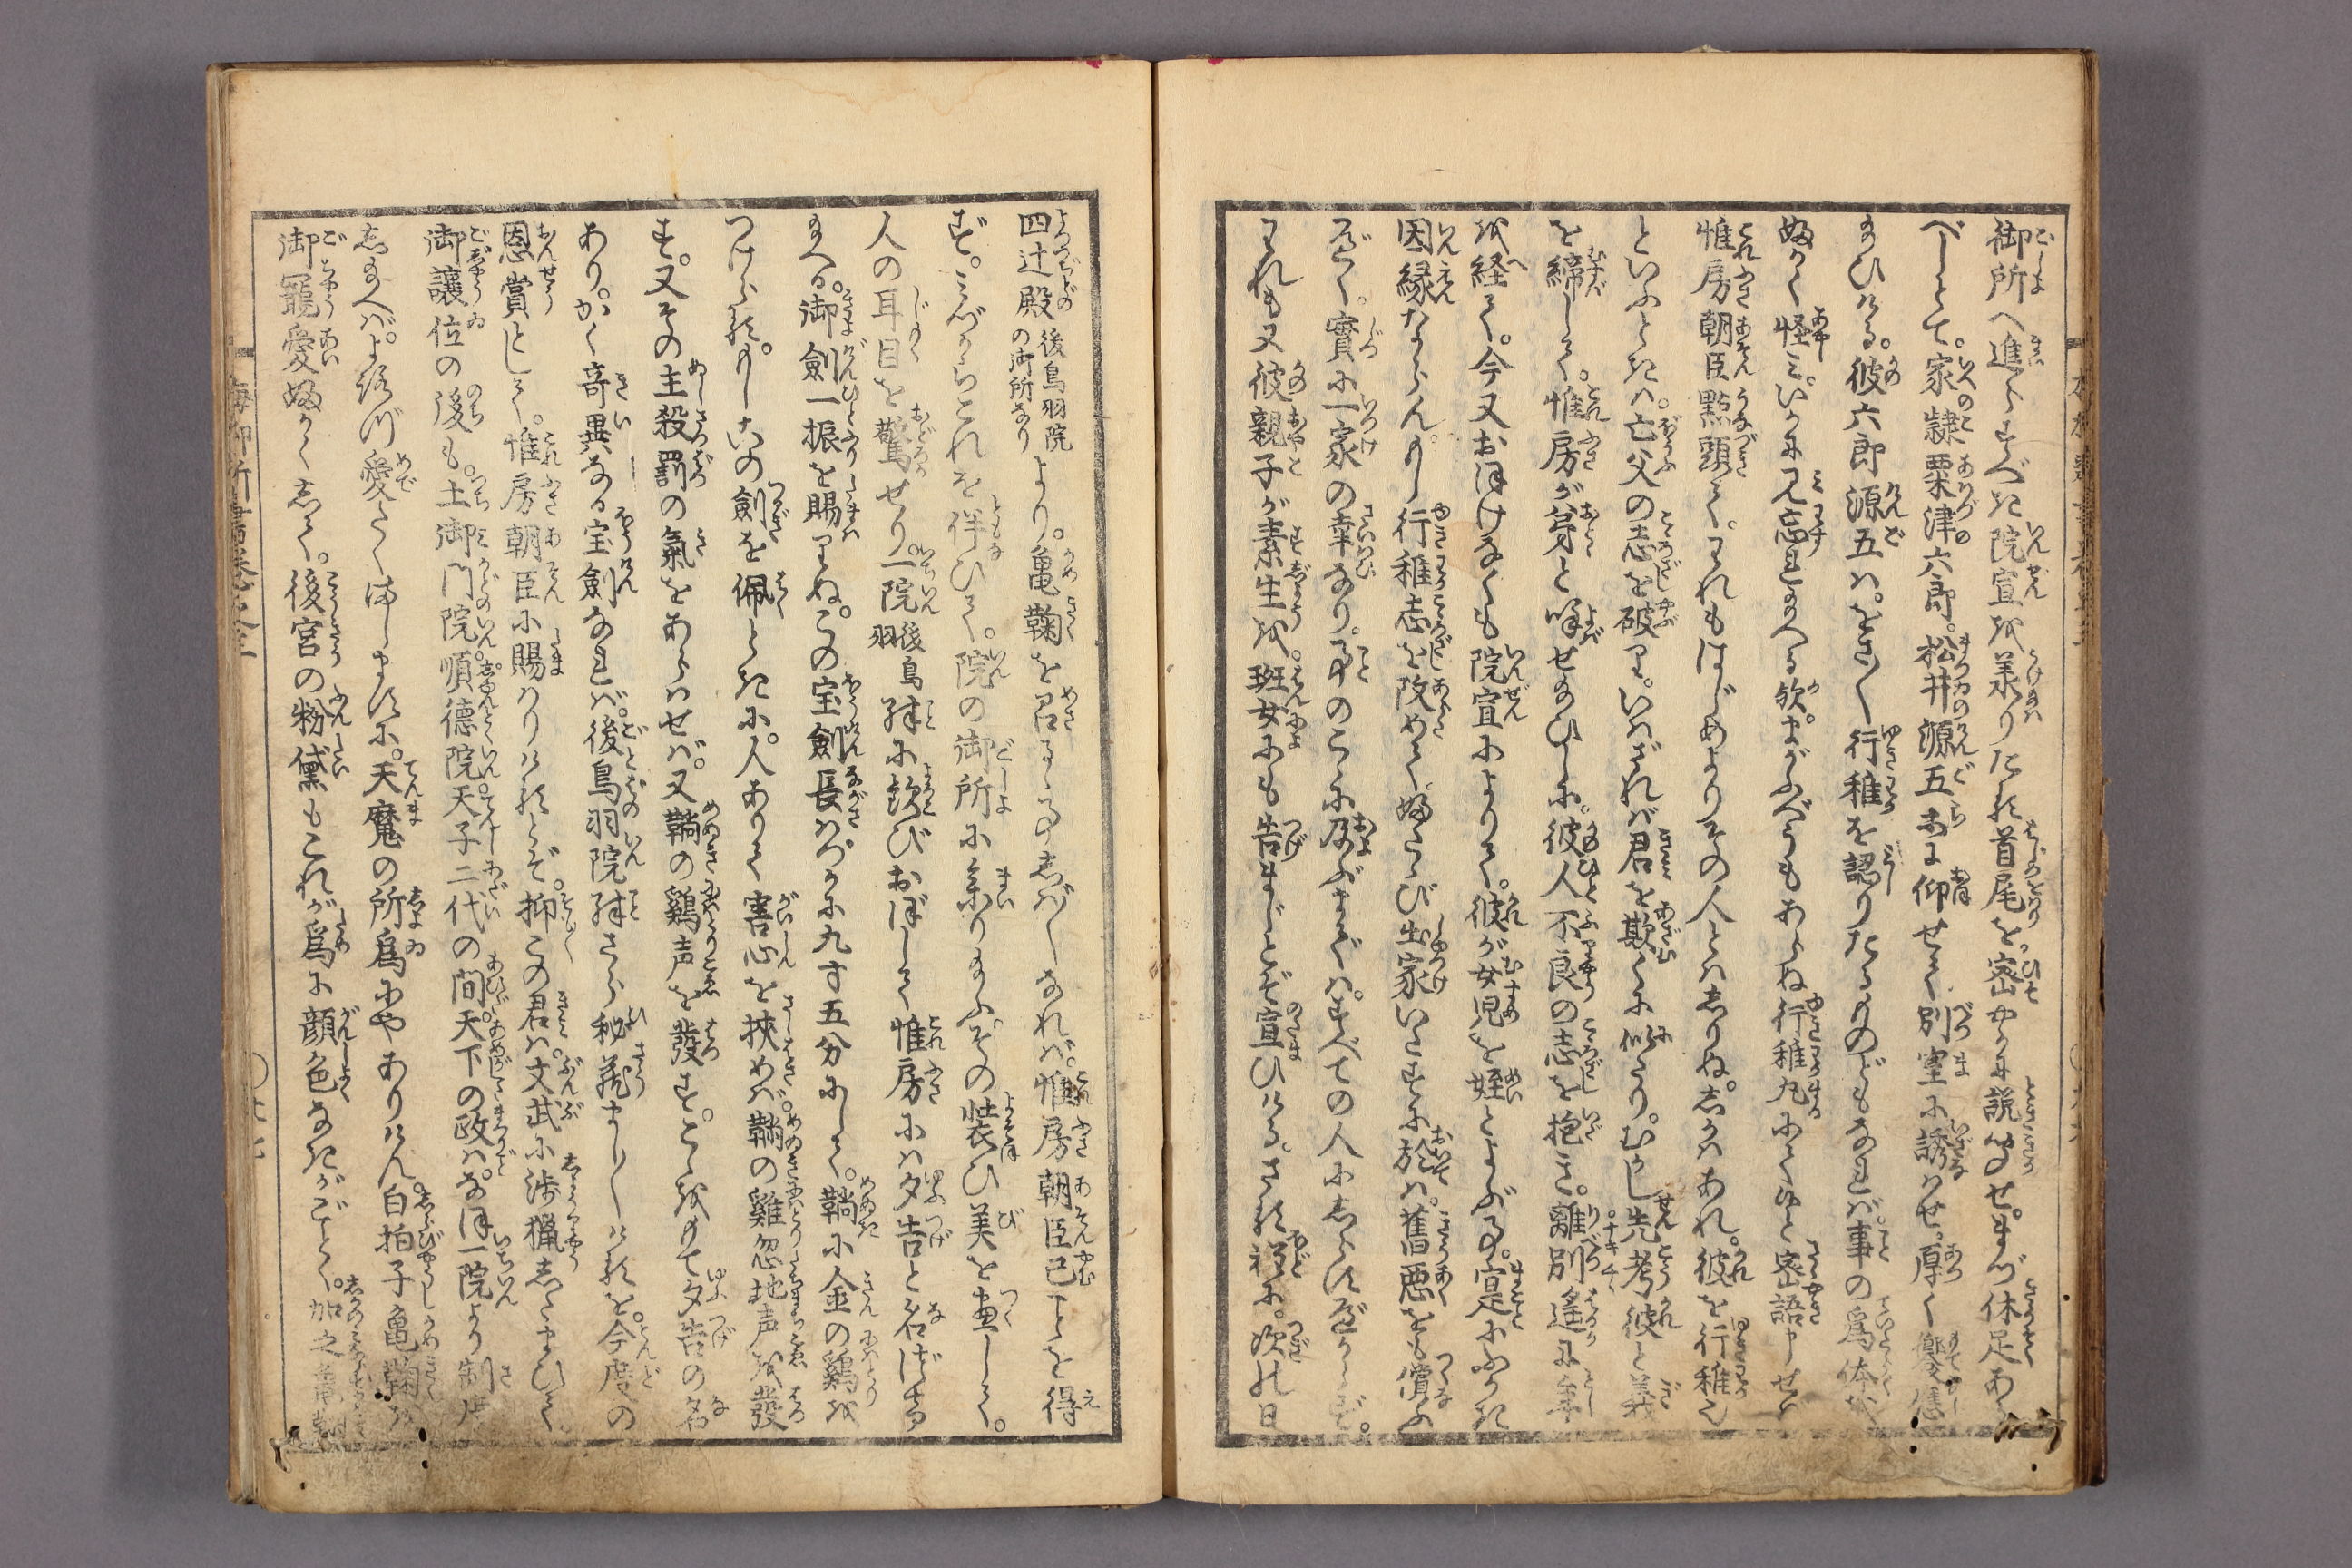 御所へ進らすべき院宣を美りたる首尾を。密やかに説聞せ。まづ休足あ
べしとて。家隷粟津六郎。松井源五らに仰せて別室に誘はせ。厚く饗応
給ひける。彼六郎源五は。をさ〳〵行稚を認りたるものどもなれば。事の為体を
ふかく怪み。いかに見忘れ給へる歟。まがふべうもあらね行稚丸にて候と密語申せば
惟房朝臣點頭て。われもはじめよりその人とはしりぬ。しかはあれ。彼を行稚也
といふときは。亡父の志を破り。いはざれば君を欺くに似たり。むかし先考彼と義
を締して。惟房が弟と呼せ給ひしに。彼人不良の志を抱き。離別遙に年
を経て。今又おほけなくも院宣によりて。彼が女児を姪とよぶ事。寔にふかき
因縁ならん。もし行稚志を改めてふたゝび出家いたすに於は。舊悪をも償ふ
べく。實に一家の幸なり。事のこゝに及ぶまでは。すべての人にしらすべからず。
われも又彼親子が素生を。班女にも告まじとぞ宣ひける。さる程に。次の日
四辻殿後鳥羽院の御所なりより。亀鞠を召るゝ事しば〳〵なれば。惟房朝臣已ことを得
ず。みづからこれを伴ひて。院の御所に参り給ふ。その装ひ美を盡して。
人の耳目を驚せり。一院後鳥羽殊に歓びおぼして惟房には夕告と名づけ
給へる。御劍一振を賜りぬ。この宝劍長はつかに九寸五分にして。鞘に金の鷄を
つけらる。もしこの劍を佩ときに。人ありて害心を挾めば。鞘の雞忽地声を發
す。又その主殺罰の氣をあらはせば。又鞘の鷄声を發す。こゝをもて夕告の名
あり。かく竒異なる宝劍なれば。後鳥羽院殊さら秘蔵まし〳〵けるを。今度の
恩賞として。惟房朝臣に賜はりけるとぞ。抑この君は。文武に渉猟したまひて。
御讓位の後も。土御門院。順德院。天子二代の間。天下の政は。なほ一院より制度
し給へば。よろづ愛たくましますに。天魔の所爲にやありけん。白拍子亀鞠を
御寵愛ふかくして。後宮の粉黛もこれが爲に顔色なきがごとし。加之亀鞠